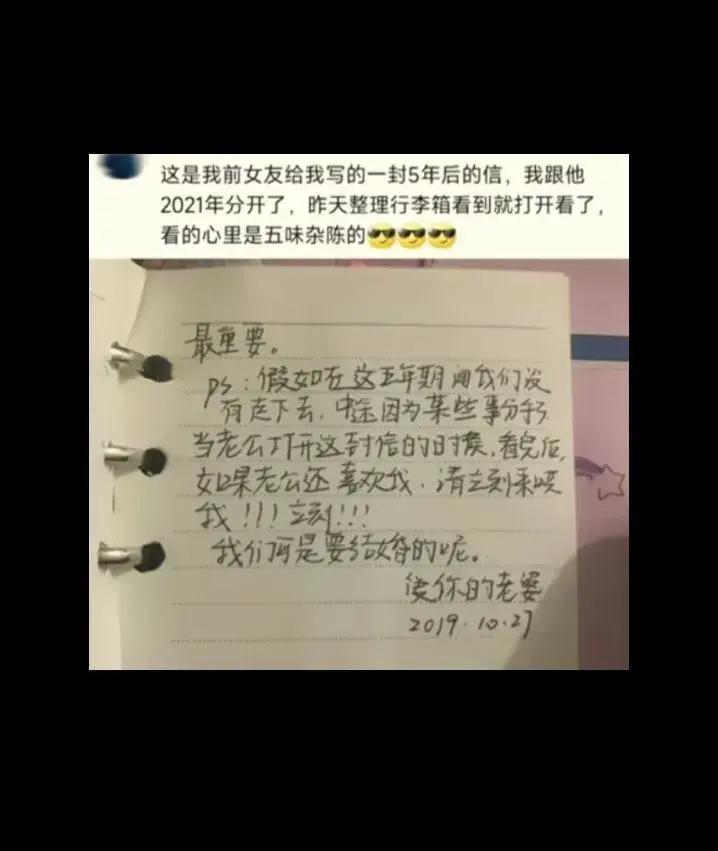 这是我前女友给我写的一封5年后的信，我跟他
2021年分开了，昨天整理行李箱看到就打开看了，
看的心里是五味杂陈的😎😎😎
最重要。
ps：假如在这五年期间我们没
有走下去，中途因为某些事分手，
当老公打开这封信的时候，看完后，
如果老公还喜欢我，请立刻来哄
我！！！立刻！！！
我们可是要结婚的呢。
爱你的老婆
2019.10.27